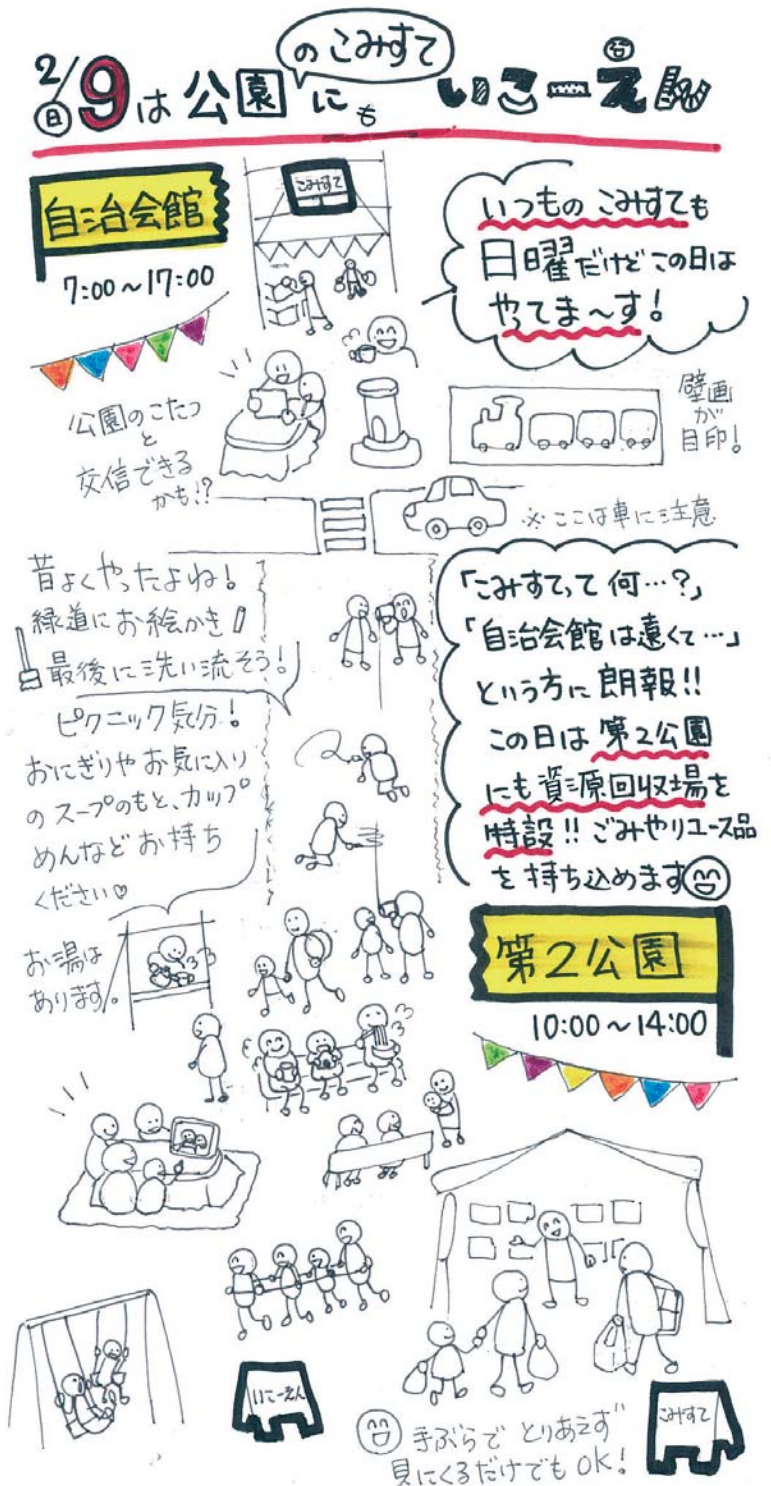 2/9 日 は 公園 のこみすて にも いこーえん
自治会館
7:00~17:00
こみすて
いつものこみすても
日曜だけどこの日は
やってま~す!
公園のこたつ
と
交信できる
かも!?
壁画
が
目印!
※ここは車に注意
昔よくやったよね!
緑道にお絵かき
最後に洗い流そう!
ピクニック気分!
おにぎりやお気に入り
のスープのもと、カップ
めんなどお持ち
ください♡
お湯は
あります。
「こみすてって何…?」
「自治会館は遠くて…」
という方に朗報!!
この日は第2公園
にも資源回収場を
特設!!ごみやリユース品
を持ち込めます
第2公園
10:00~14:00
いこーえん
こみすて
手ぶらでとりあえず
見にくるだけでもOK!